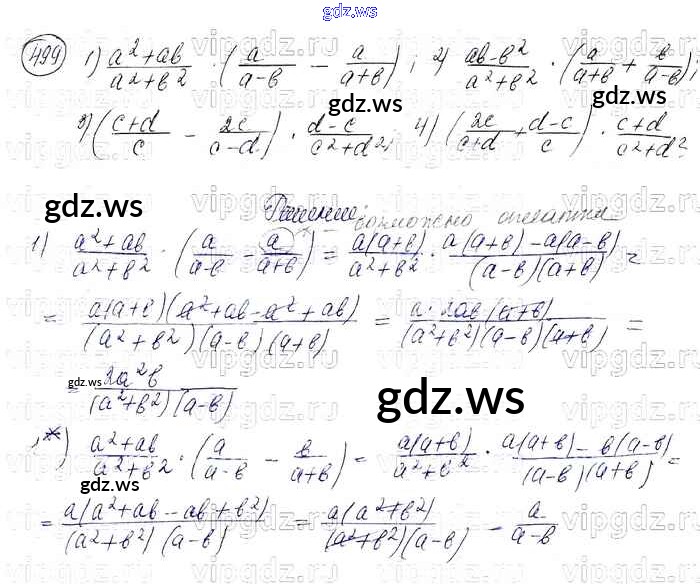 gdz.ws
499 1) (a²+ab)/(a²+b²) · (a/(a-b) - a/(a+b)); 2) (ab-b²)/(a²+b²) · (a/(a+b) + b/(a-b));
gdz.ws
3) ((c+d)/c - 2c/(c-d)) · (d-c)/(c²+d²); 4) (2c/(c+d) + (d-c)/c) · (c+d)/(c²+d²)
gdz.ws
Решение:
* - возможно опечатка
1) (a²+ab)/(a²+b²) · (a/(a-b) - a/(a+b)) = a(a+b)/(a²+b²) · (a(a+b)-a(a-b))/((a-b)(a+b)) =
= a(a+b)(a²+ab-a²+ab)/((a²+b²)(a-b)(a+b)) = a·2ab(a+b)/((a²+b²)(a-b)(a+b)) =
= 2a²b/((a²+b²)(a-b))
gdz.ws
gdz.ws
*) (a²+ab)/(a²+b²) · (a/(a-b) - b/(a+b)) = a(a+b)/(a²+b²) · (a(a+b)-b(a-b))/((a-b)(a+b)) =
= a(a²+ab-ab+b²)/((a²+b²)(a-b)) = a(a²+b²)/((a²+b²)(a-b)) - a/(a-b)
gdz.ws
vipgdz.ws